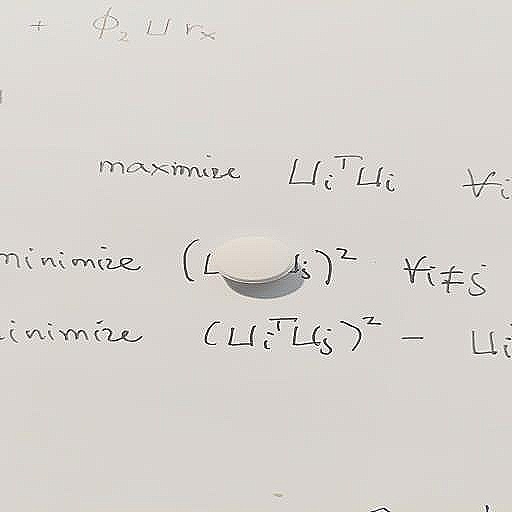 + ϕ₂ ⊔ rₓ
maximize ⊔ᵢᵀ⊔ᵢ ∀i
minimize ( ⱼ)² ∀i≠j
inimize (⊔ᵢᵀ⊔ⱼ)² − ⊔ᵢ